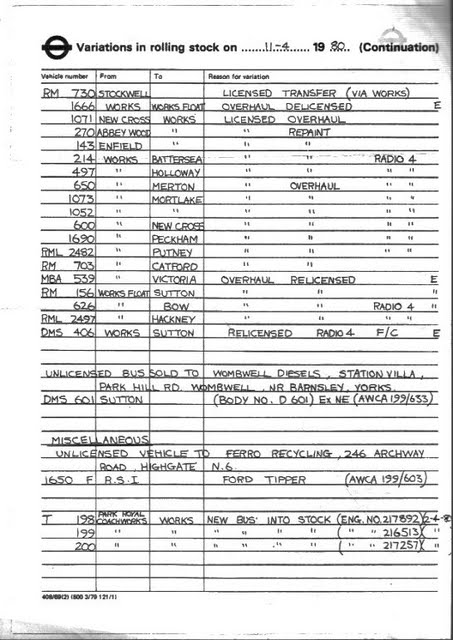 Variations in rolling stock on ......11-4...... 19 80.. (Continuation)
Vehicle number From To Reason for variation
RM 730 STOCKWELL LICENSED TRANSFER (VIA WORKS)
1666 WORKS WORKS FLOAT OVERHAUL DELICENSED E
1071 NEW CROSS WORKS LICENSED OVERHAUL
270 ABBEY WOOD " " REPAINT
143 ENFIELD " " "
214 WORKS BATTERSEA " " RADIO 4
497 " HOLLOWAY " " " "
650 " MERTON " OVERHAUL " "
1073 " MORTLAKE " " " "
1052 " " " " " "
600 " NEW CROSS " " " "
1690 " PECKHAM " " " "
RML 2482 " PUTNEY " " " "
RM 703 " CATFORD " "
MBA 539 " VICTORIA OVERHAUL RELICENSED E
RM 156 WORKS FLOAT SUTTON " " "
626 " BOW " " RADIO 4 "
RML 2497 " HACKNEY " " "
DMS 406 WORKS SUTTON RELICENSED RADIO 4 F/C E
UNLICENSED BUS SOLD TO WOMBWELL DIESELS, STATION VILLA,
PARK HILL RD. WOMBWELL. NR BARNSLEY, YORKS.
DMS 601 SUTTON (BODY NO. D 601) EX NE (AWCA 199/633)
MISCELLANEOUS
UNLICENSED VEHICLE TO FERRO RECYCLING, 246 ARCHWAY
ROAD, HIGHGATE N.6.
1650 F R.S.I FORD TIPPER (AWCA 199/603)
T 198 PARK ROYAL COACHWORKS WORKS NEW BUS INTO STOCK (ENG. NO. 217892)(2-4-8
199 " " " " " " ( " " 216513)( "
200 " " " " " " ( " " 217257)( "
406/69(2) (500 3/79 121/1)